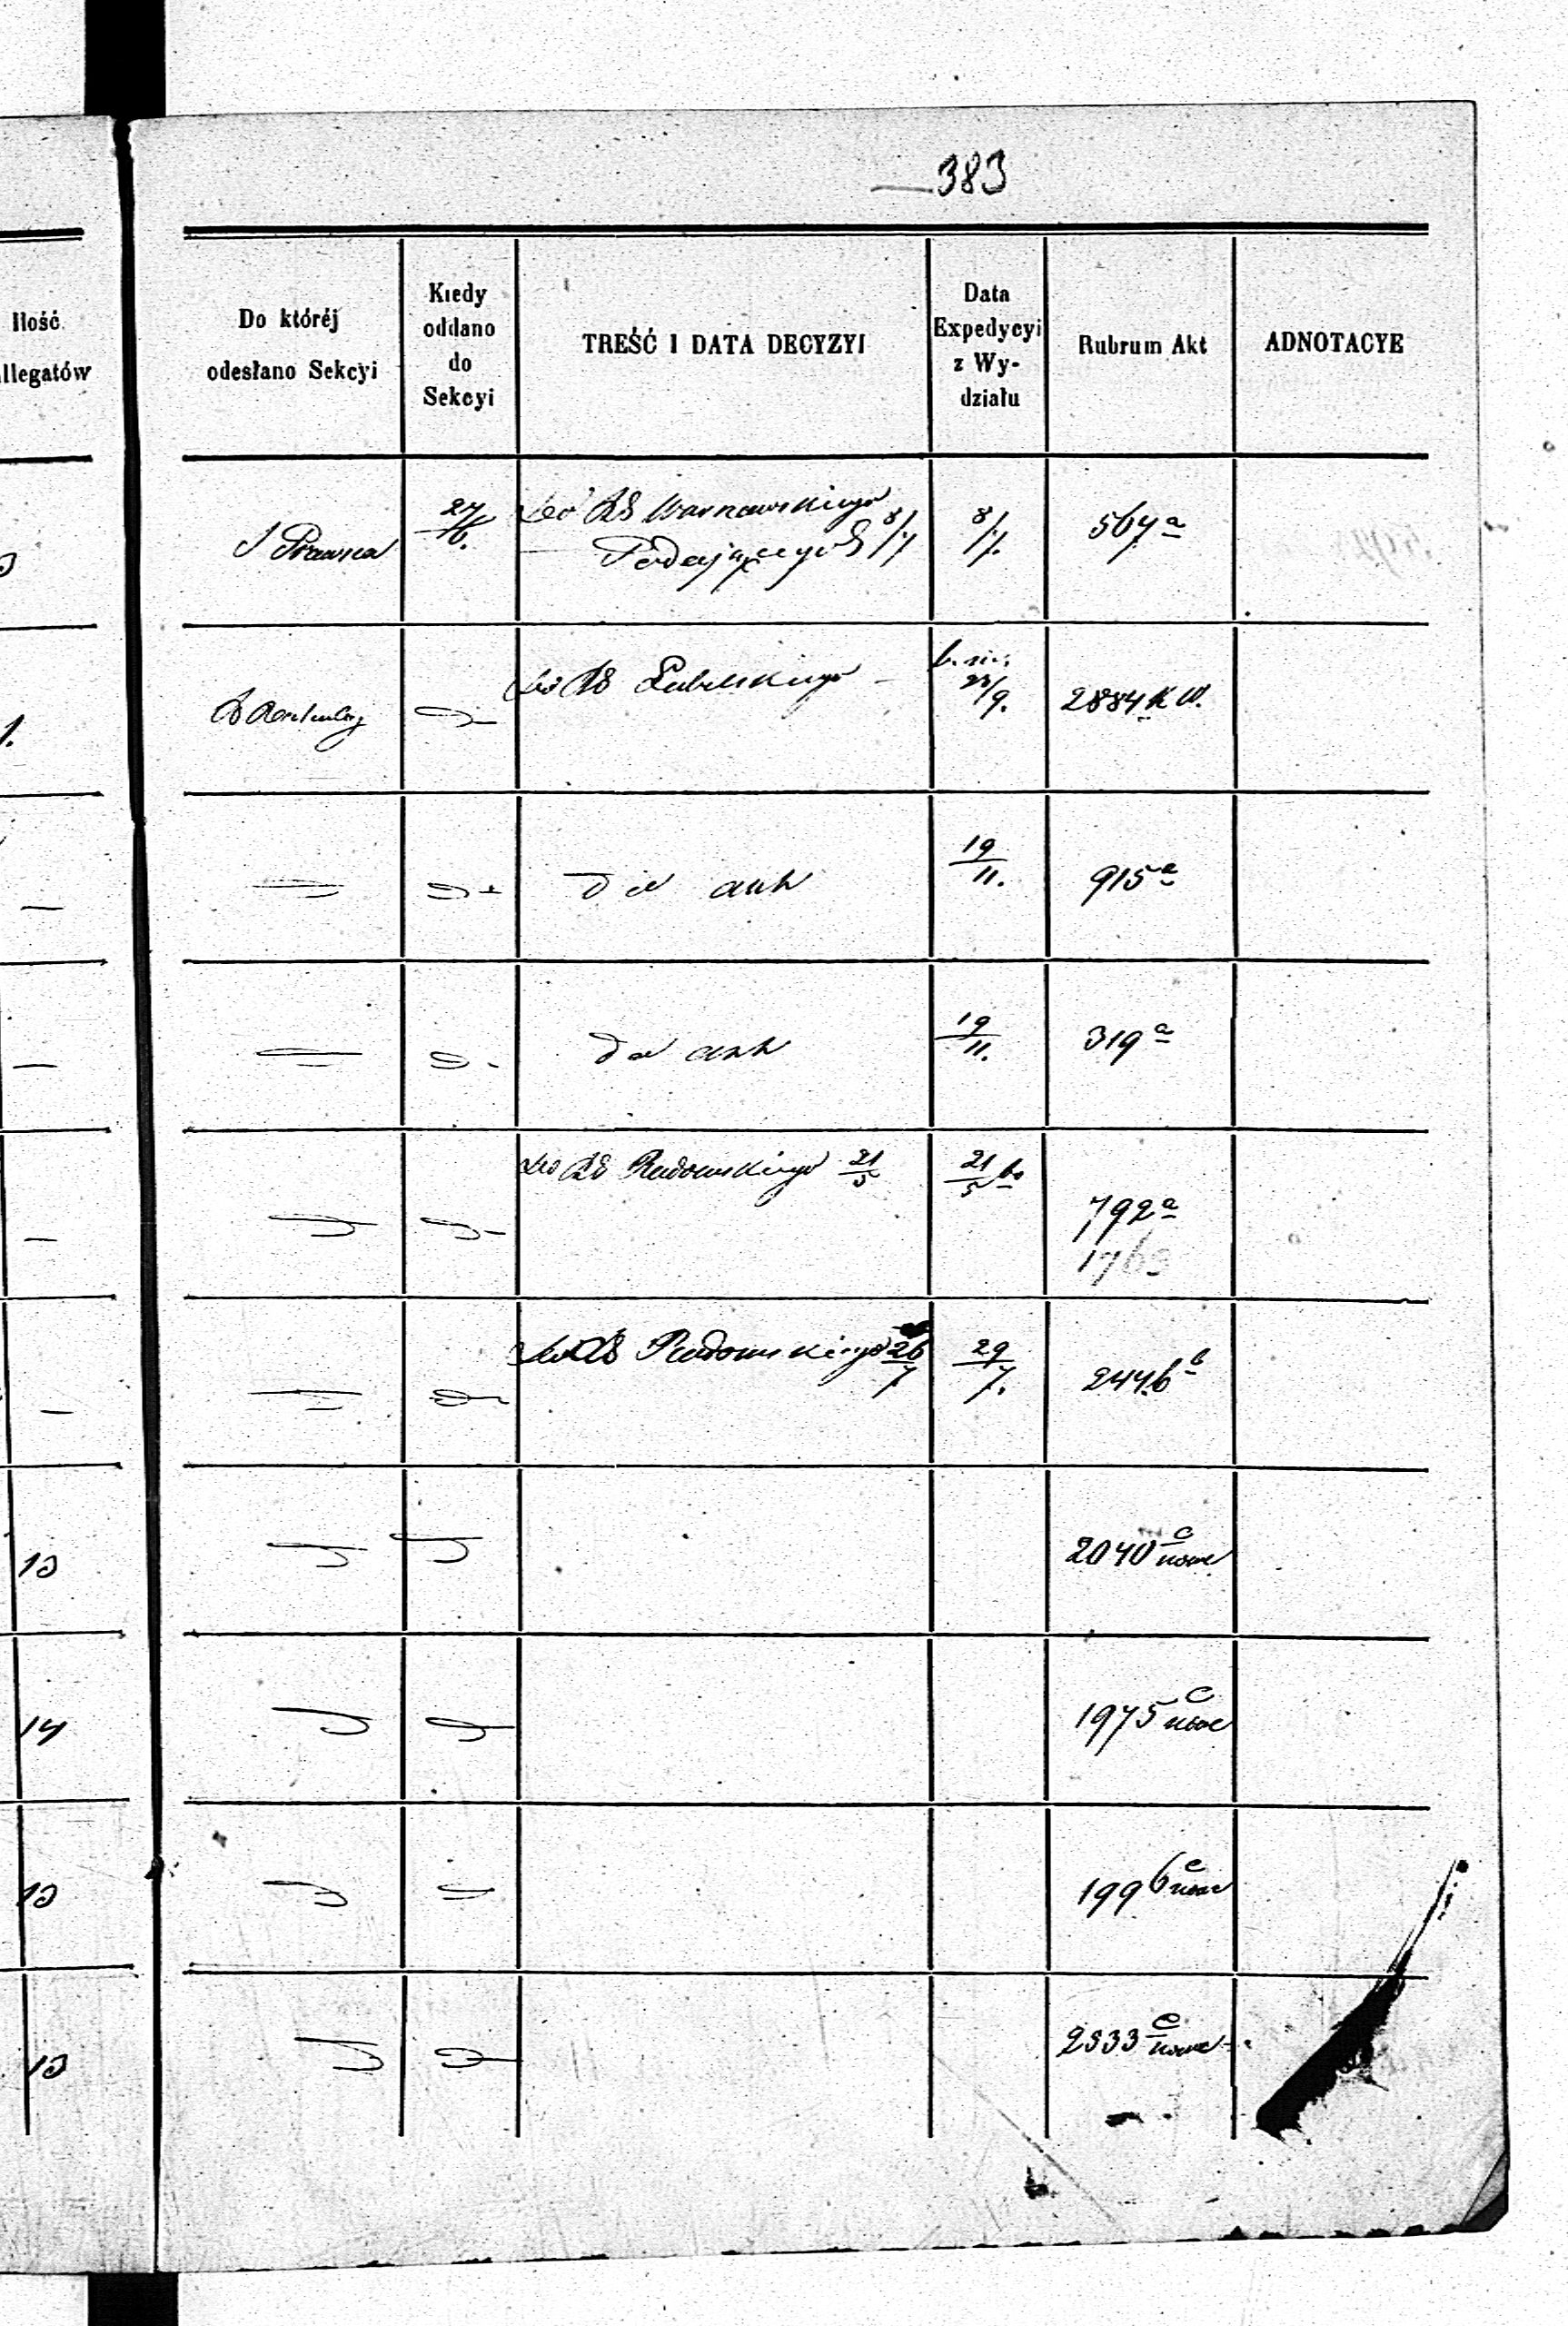 383
Ilość
llegatów
Do któréj
odesłano Sekcyi
Kiedy
oddano
do
Sekcyi
TREŚĆ I DATA DECYZYI
Data
Expedycyi
z Wy-
działu
Rubrum Akt
ADNOTACYE
S Prawna
27/6.
Do RG Warszawskiego
Podającego 8/7
8/7.
567 a
1.
Do RG Lubelskiego
2884 K W.
—
do akt
19/11.
915 a
—
do akt
19/11.
319 a
—
Do RG Radomskiego 21/5
21/5
792 a
1763
—
Do RG Radomskiego 26/7
29/7.
2446 b
10
2040 c nowe
14
1975 c nowe
10
1996 c nowe
10
2333 c nowe